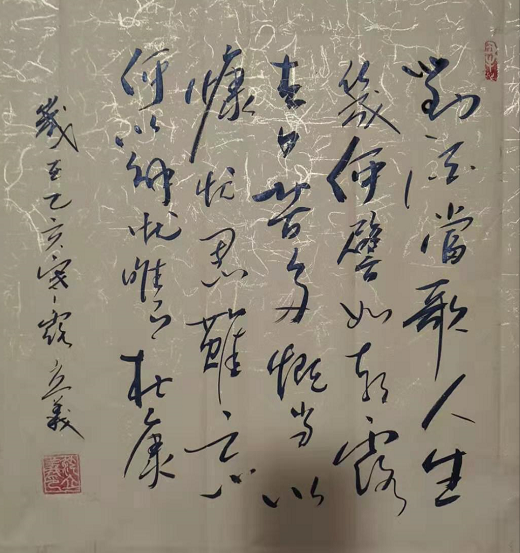 對酒當歌人生
幾何譬如朝露
去日苦多慨当以
慷忧思難忘
何以解忧唯有杜康
歲在己亥寒露立義